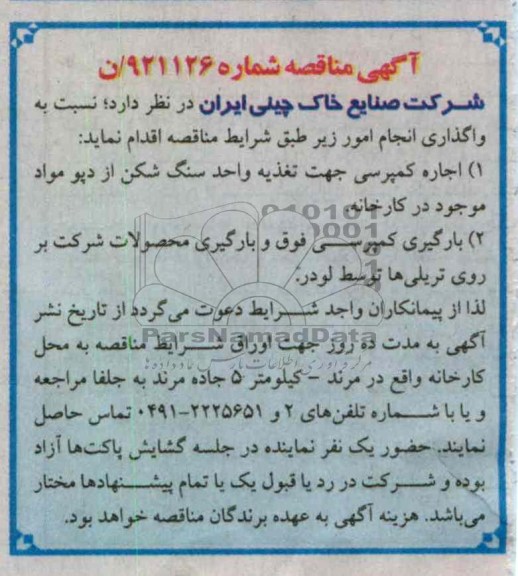 آگهی مناقصه شماره ۹۲۱۱۲۶/ن
شرکت صنایع خاک چینی ایران در نظر دارد؛ نسبت به
واگذاری انجام امور زیر طبق شرایط مناقصه اقدام نماید:
۱) اجاره کمپرسی جهت تغذیه واحد سنگ شکن از دپو مواد
موجود در کارخانه.
۲) بارگیری کمپرسی فوق و بارگیری محصولات شرکت بر
روی تریلی‌ها توسط لودر.
لذا از پیمانکاران واجد شرایط دعوت می‌گردد از تاریخ نشر
آگهی به مدت ده روز جهت اوراق شرایط مناقصه به محل
کارخانه واقع در مرند – کیلومتر ۵ جاده مرند به جلفا مراجعه
و یا با شماره تلفن‌های ۲ و ۲۲۲۵۶۵۱-۰۴۹۱ تماس حاصل
نمایند. حضور یک نفر نماینده در جلسه گشایش پاکت‌ها آزاد
بوده و شرکت در رد یا قبول یک یا تمام پیشنهادها مختار
می‌باشد. هزینه آگهی به عهده برندگان مناقصه خواهد بود.
ParsNamadData